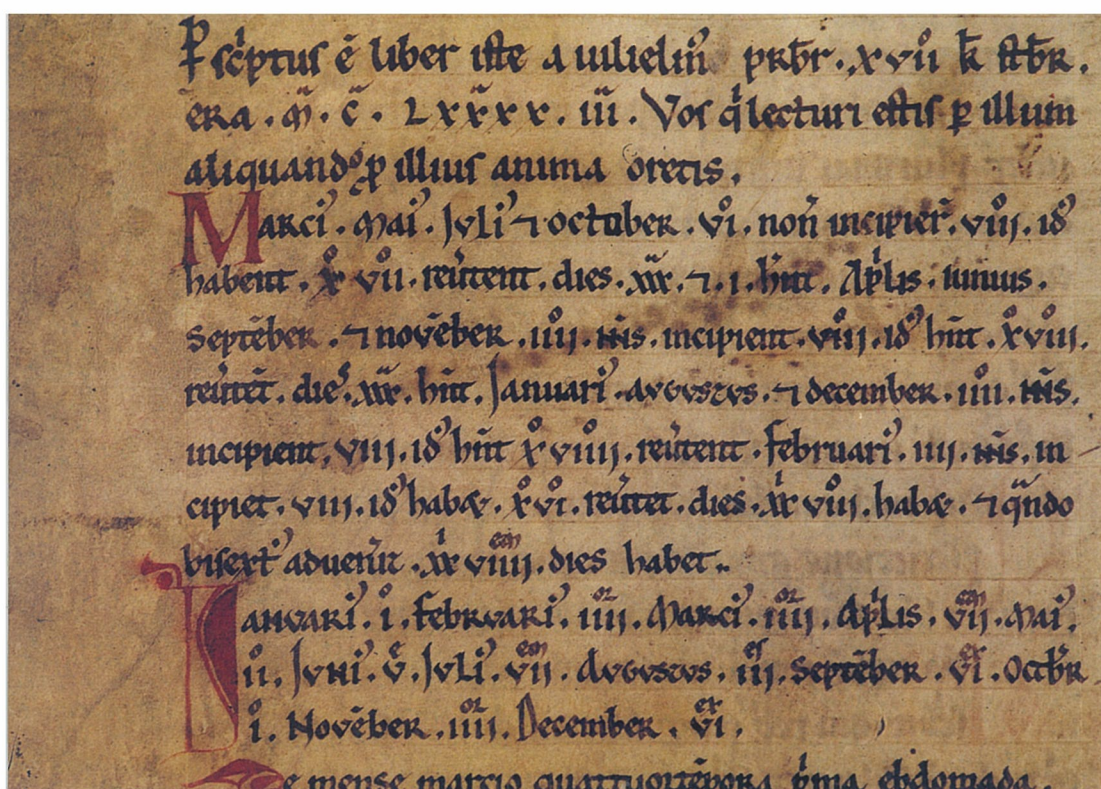 P scͥptus ē liber iste a uilielm̄ prb̄r . xvii k̄ stb̄r .
era . m̄ . c̄ . Lxx̃xx . iii . Vos q̇ lecturi estis ꝑ illum
aliquando ꝓ illius anima oretis .
Marciʼ . Maiʼ . Juliʼ ⁊ october . vi . non̄ incipier̄ . viii . idʼ
habent . x̊ vii . reũtent . dies . xxx . ⁊ . i . hn̄t . Ap̄lis . iunius .
Septēber . ⁊ novēber . iiii . n̄is . incipient . viii . idʼ hn̄t . x̊viii .
reũtēt . dieˢ . xxx . hn̄t . Januariʼ . avgvstvs . ⁊ december . iiii . n̄is .
incipient . viii . idʼ hn̄t x̊ viiii . reũtent . februariʼ . iiii . n̄is . in
cipiet . viii . idʼ habæ . x̊vi . reũtet . dies . xx viii . habæ . ⁊ qn̄do
bisextʼ aduenr̄it . xx viiii . dies habet ..
Ianvariʼ . i . febrvariʼ . iiii . Marciʼ . iiii . Ap̄lis . vii . Maiʼ .
ii . Jvniʼ . v . Jvliʼ . vii . Avgvstvs . iii . Septēber . vi . Octb̄r
i . Novēber . iiii . December . vi .
De mense marcio quattuortēpora p̍ma ebdomada .